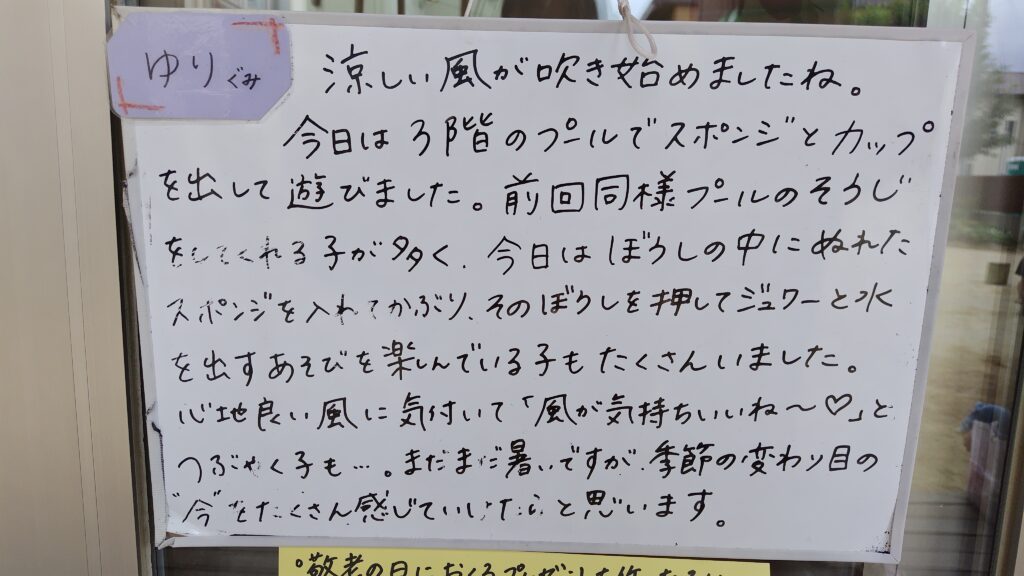 ゆりぐみ
涼しい風が吹き始めましたね。
今日は3階のプールでスポンジとカップ
を出して遊びました。前回同様プールのそうじ
をしてくれる子が多く、今日はぼうしの中にぬれた
スポンジを入れてかぶり、そのぼうしを押してジュワーと水
を出すあそびを楽しんでいる子もたくさんいました。
心地良い風に気付いて「風が気持ちいいね～♡」と
つぶやく子も…。まだまだ暑いですが、季節の変わり目の
"今"をたくさん感じていけたらと思います。
°敬老の日におくるプレゼントを作